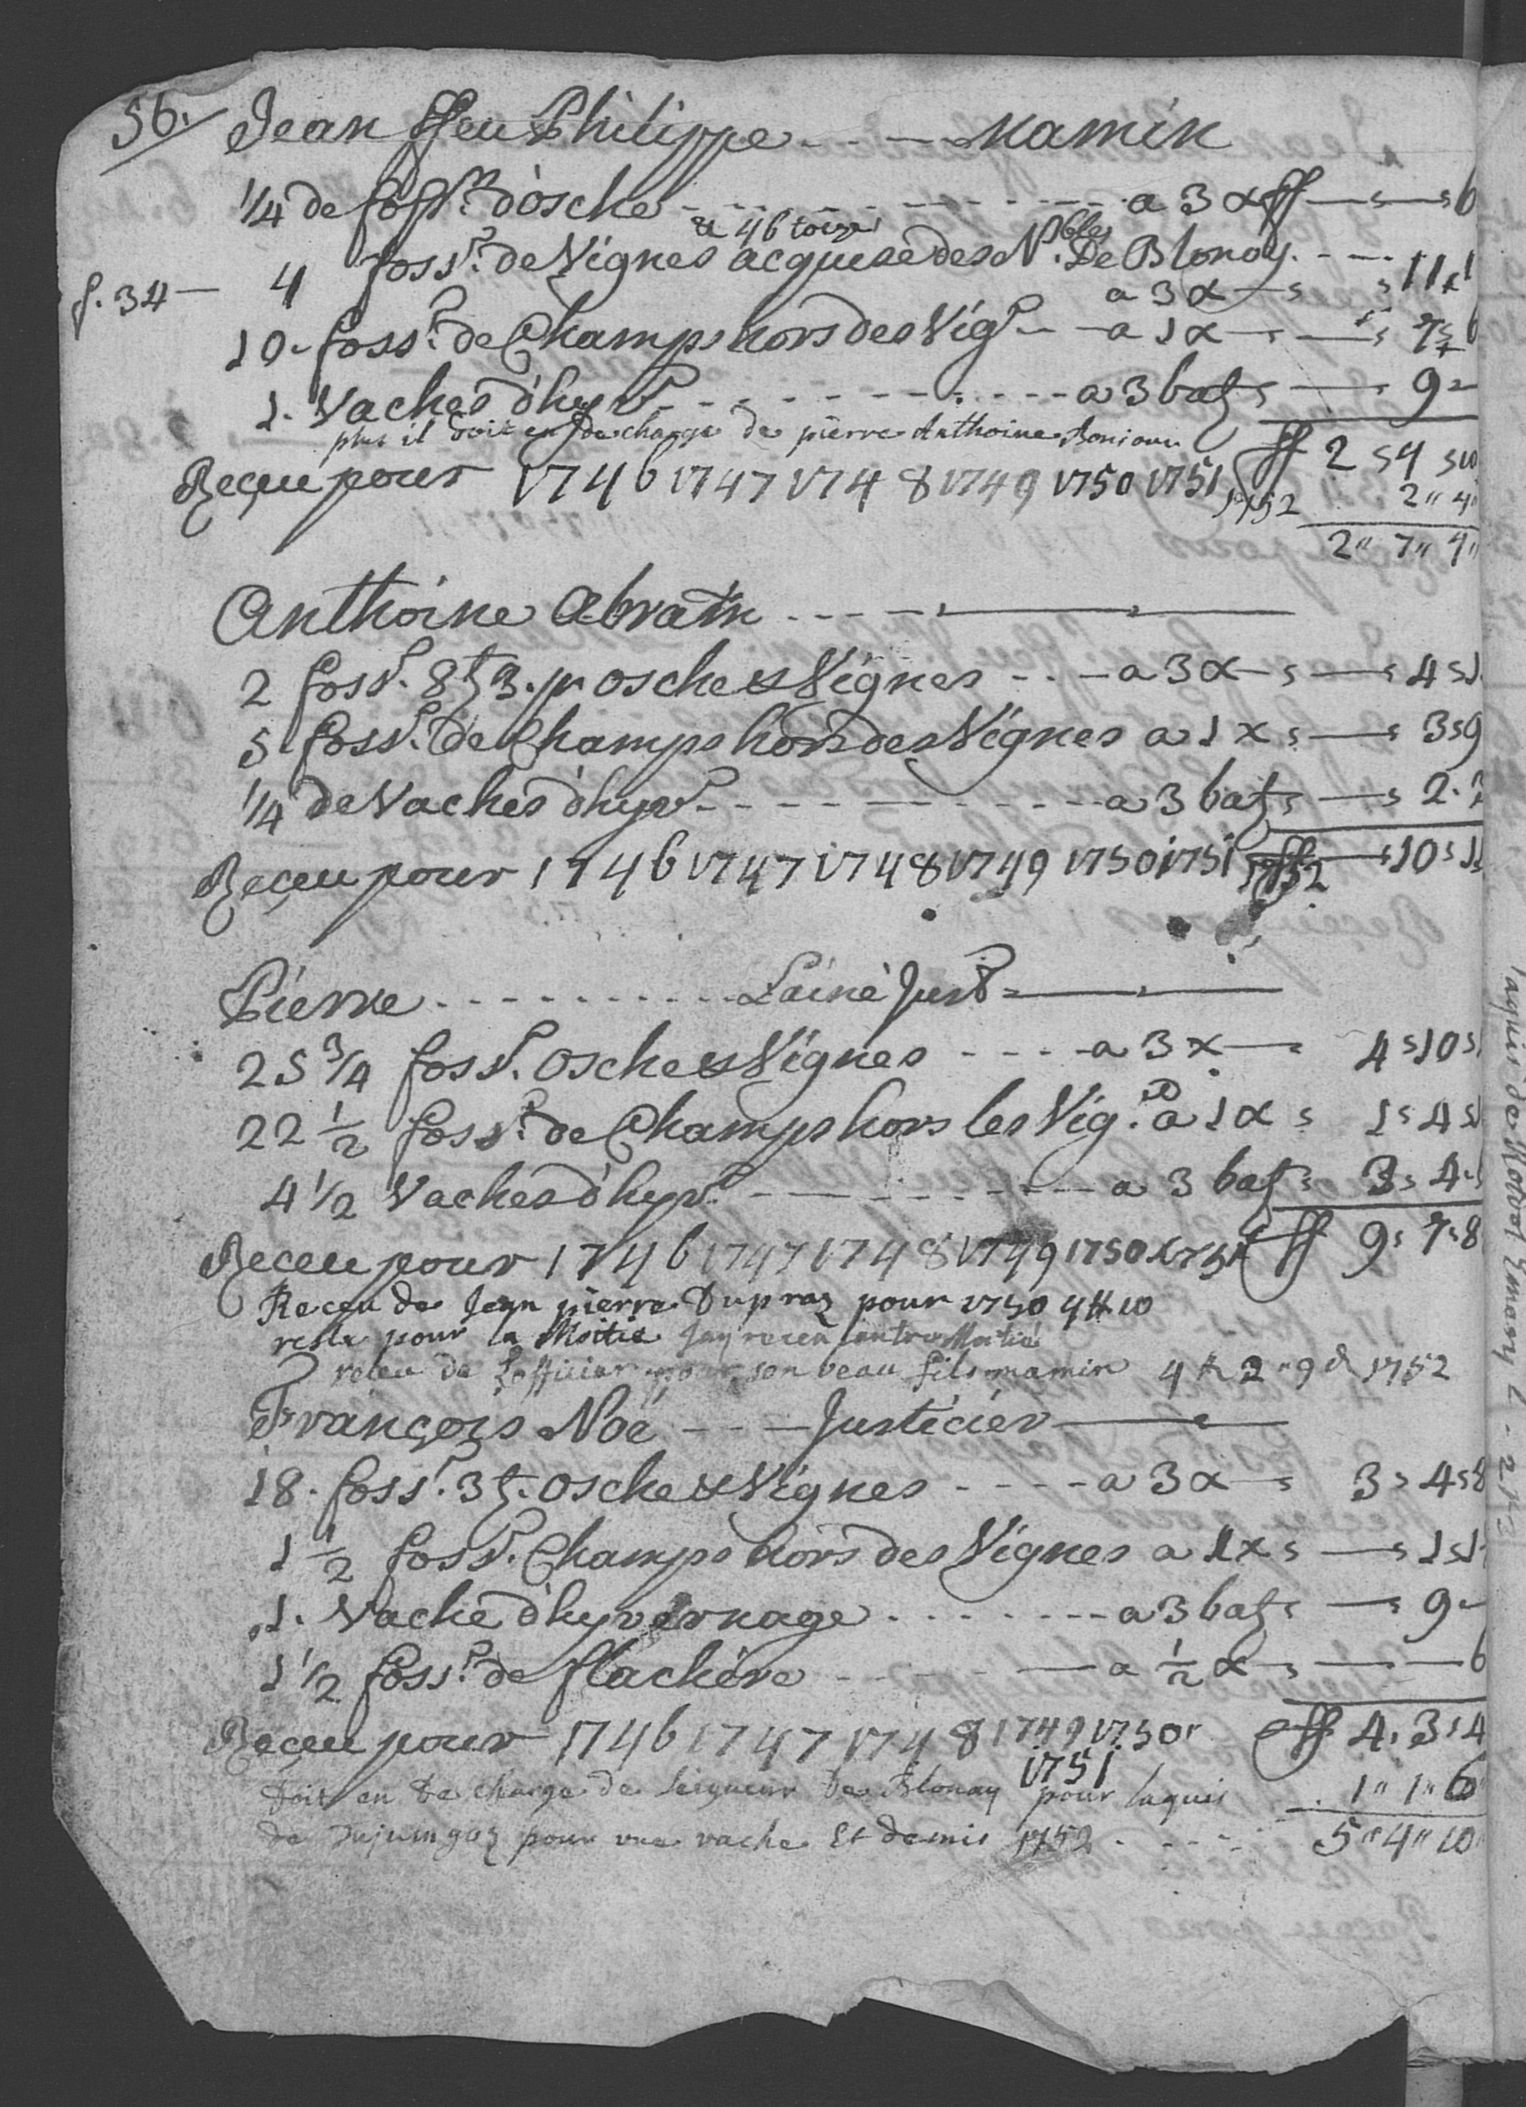 56. Jean ffeu Philippe - - - Mamin
1/4 de foss.r d'osche - - - a 3 x ff — s — s 6
& 46 toises
f. 34 — 4 foss.r de Vignes acquise des N.bles De Blonay. - - -
a 3 x — s s 11
10. foss.r de Champs hors des Vig.s - - a 1 x — s — s 7
1. Vaches d'hyv.e - - - a 3 batz s — s 9 -
plus il doit en de charge de pierre Anthoine
Reçeu pour 1746 1747 1748 1749 1750 1751 ff 2 s 4 s 10
1752 2 " 4 "
2 " 7 " 4 "
Anthoine Abram - - -
2 foss.r 8 t 3. p osche & Vignes - - - a 3 x — s — s 4 s 1
5 foss.r de Champs hors des Vignes a 1 x s — s 3 s 9
1/4 de Vaches d'hyv.e - - - a 3 batz s — s 2.
Reçeu pour 1746 1747 1748 1749 1750 1751 ff — s 10 s
1752
Pierre - - - L'ainé Just.r
25 3/4 foss.r Osche & Vignes - - - a 3 x — s 4 s 10 s
22 1/2 foss.r de Champs hors les Vig.s a 1 x s 1 s 4 s
4 1/2 Vaches d'hyv.e - - - a 3 batz s 3 s 4 s
Receu pour 1746 1747 1748 1749 1750 1751 ff 9 s 7 s 8
Receu de Jean pierre Dupraz pour 1750 4 ff 10
reste pour la Moitié Jay receu lautre Moitié
releu de Lofficier pour son beau fils mamin 4 ff 2 " 9 d 1752
François Noé - - - Justicier
18. foss.r 3 t. osche & Vignes - - - a 3 x — s 3 s 4 s 8
1 1/2 foss.r Champs hors des Vignes a 1 x s — s 1 s 1
1. Vache d'hyvernage - - - a 3 batz s — s 9 -
1 1/2 foss.r de flachère - - - a 1/2 x — s — 6
Reçeu pour 1746 1747 1748 1749 1750 ff 4. 3 s 4
1751
Doit en De charge de Seigneur De Blonay pour laquis 1 " 1 " 6
de pour une vache Et demis 1752 - - - 5 " 4 " 10
laquis de